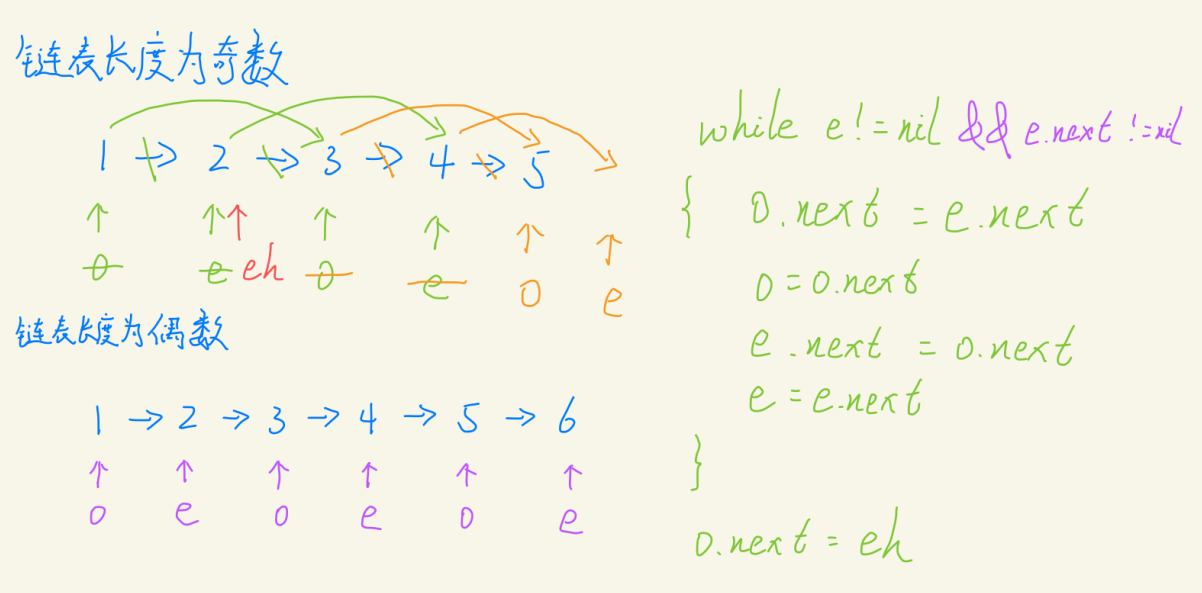 链表长度为奇数
1 → 2 → 3 → 4 → 5
o e eh o e o e
链表长度为偶数
1 → 2 → 3 → 4 → 5 → 6
o e o e o e
while e!=nil && e.next!=nil
{ o.next = e.next
o=o.next
e.next = o.next
e=e.next
}
o.next = eh